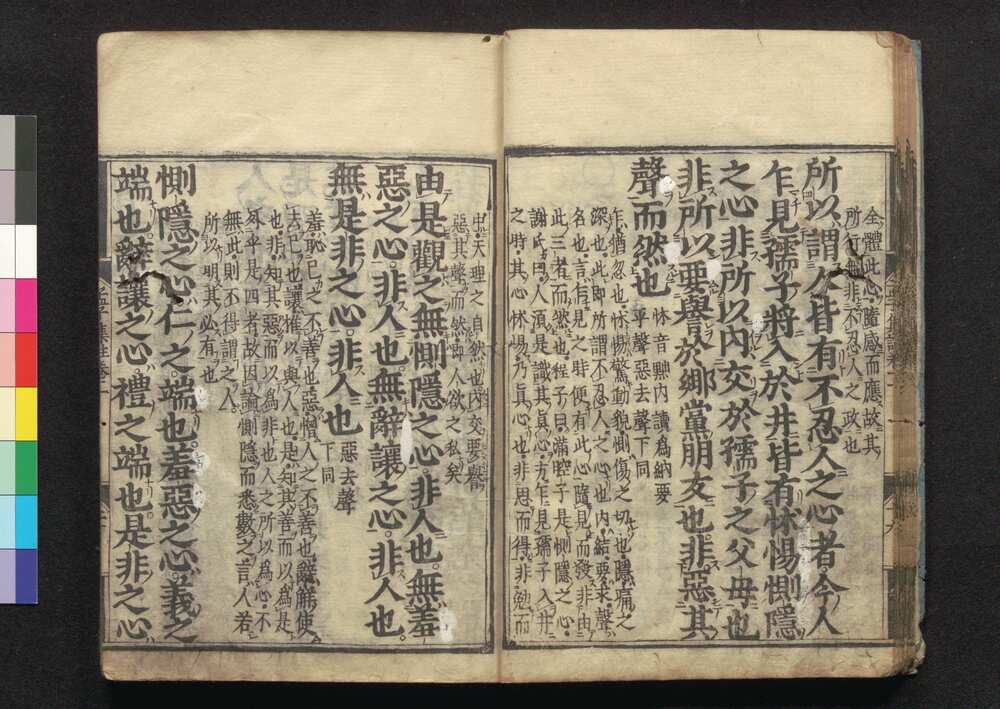 全體此心隨感而應故其
所行無非不忍人之政也
所以謂人皆有不忍人之心者今人
乍見孺子將入於井皆有怵惕惻隱
之心非所以內交於孺子之父母也
非所以要譽於鄉黨朋友也非惡其
聲而然也
怵音黜內讀為納要
平聲惡去聲下同
乍猶忽也怵惕驚動貌惻傷之切也隱痛之
深也此即所謂不忍人之心也內結要求聲
名也言乍見之時便有此心隨見而發非由
此三者而然也程子曰滿腔子是惻隱之心
謝氏曰人須是識其真心方乍見孺子入井
之時其心怵惕乃真心也非思而得非勉而
中天理之自然也內交要譽
惡其聲而然即人欲之私矣
由是觀之無惻隱之心非人也無羞
惡之心非人也無辭讓之心非人也
無是非之心非人也
惡去聲
下同
羞恥己之不善也惡憎人之不善也辭解使
去己也讓推以與人也是知其善而以為是
也非知其惡而以為非也人之所以為心不
外乎是四者故因論惻隱而悉數之言人若
無此則不得謂之人
所以明其必有也
惻隱之心仁之端也羞惡之心義之
端也辭讓之心禮之端也是非之心